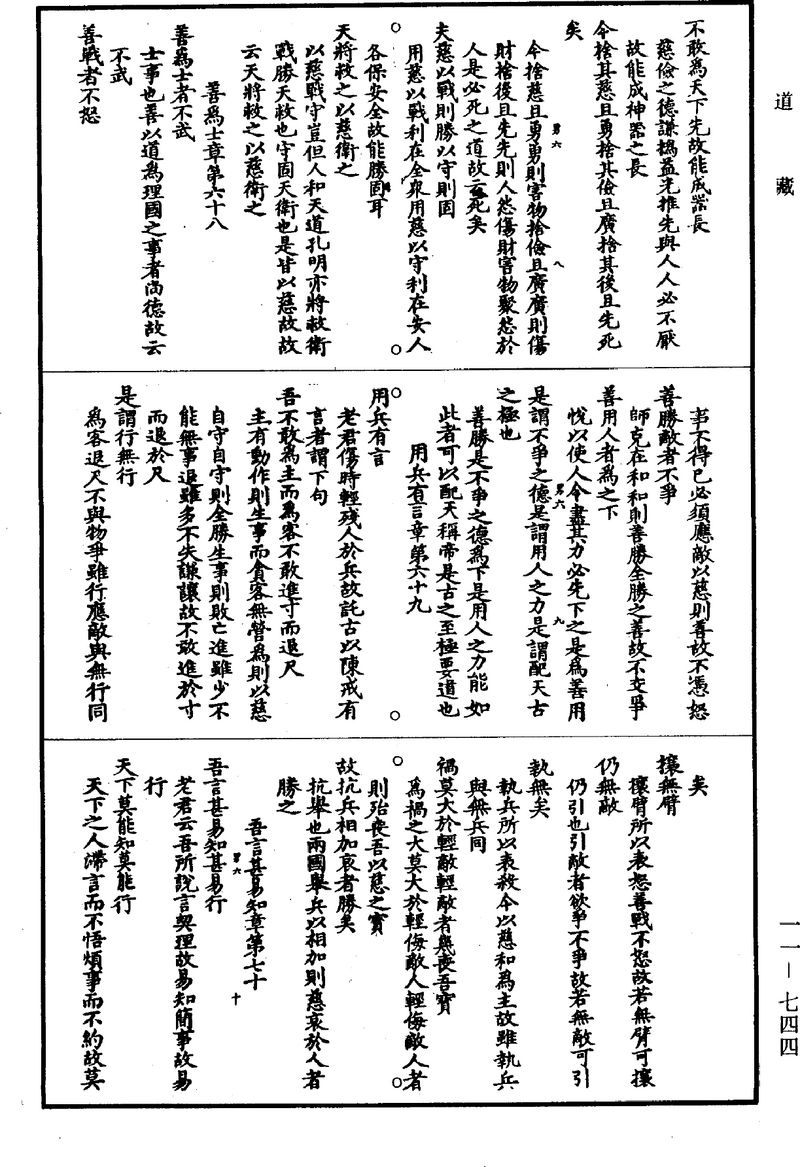 道藏
不敢為天下先故能成器長
慈儉之德謙撝益光推先與人人必不厭
故能成神器之長
今捨其慈且勇捨其儉且廣捨其後且先死
矣
今捨慈且勇勇則害物捨儉且廣廣則傷
財捨後且先先則人怨傷財害物聚怨於
人是必死之道故云死矣
夫慈以戰則勝以守則固
用慈以戰利在全衆用慈以守利在安人
各保安全故能勝固耳
天將救之以慈衛之
以慈戰守豈但人和天道孔明亦將救衛
戰勝天救也守固天衛也是皆以慈故故
云天將救之以慈衛之
善為士章第六十八
善為士者不武
士事也善以道為理國之事者尚德故云
不武
善戰者不怒
事不得已必須應敵以慈則善故不憑怒
善勝敵者不爭
師克在和和則善勝全勝之善故不交爭
善用人者為之下
悅以使人令盡其力必先下之是為善用
是謂不爭之德是謂用人之力是謂配天古
之極也
善勝是不爭之德為下是用人之力能如
此者可以配天稱帝是古之至極要道也
用兵有言章第六十九
用兵有言
老君傷時輕殘人於兵故託古以陳戒有
言者謂下句
吾不敢為主而為客不敢進寸而退尺
主有動作則生事而貪客無營為則以慈
自守自守則全勝生事則敗亡進雖少不
能無事退雖多不失謙讓故不敢進於寸
而退於尺
是謂行無行
為客退尺不與物爭雖行應敵與無行同
矣
攘無臂
攘臂所以表怒善戰不怒故若無臂可攘
仍無敵
仍引也引敵者欲爭不爭故若無敵可引
執無兵
執兵所以表殺今以慈和為主故雖執兵
與無兵同
禍莫大於輕敵輕敵者幾喪吾寶
為禍之大莫大於輕侮敵人輕侮敵人者
則殆喪吾以慈之寶
故抗兵相加哀者勝矣
抗舉也兩國舉兵以相加則慈哀於人者
勝之
吾言甚易知章第七十
吾言甚易知甚易行
老君云吾所說言契理故易知簡事故易
行
天下莫能知莫能行
天下之人滯言而不悟煩事而不約故莫
一一—七四四